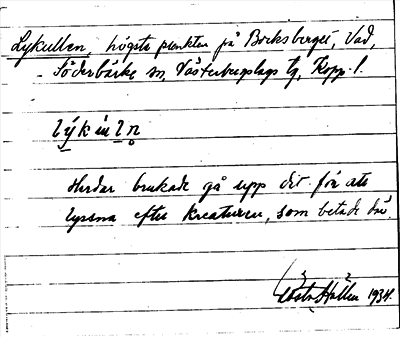 Lykullen, högsta punkten på Bocksberget, Vad,
Söderbärke sn, Västerbergslags tg, Kopp. l.
lýkuln
Herdar brukade gå upp dit för att
lyssna efter kreaturen, som betade där.
Gösta Hallen 1934.